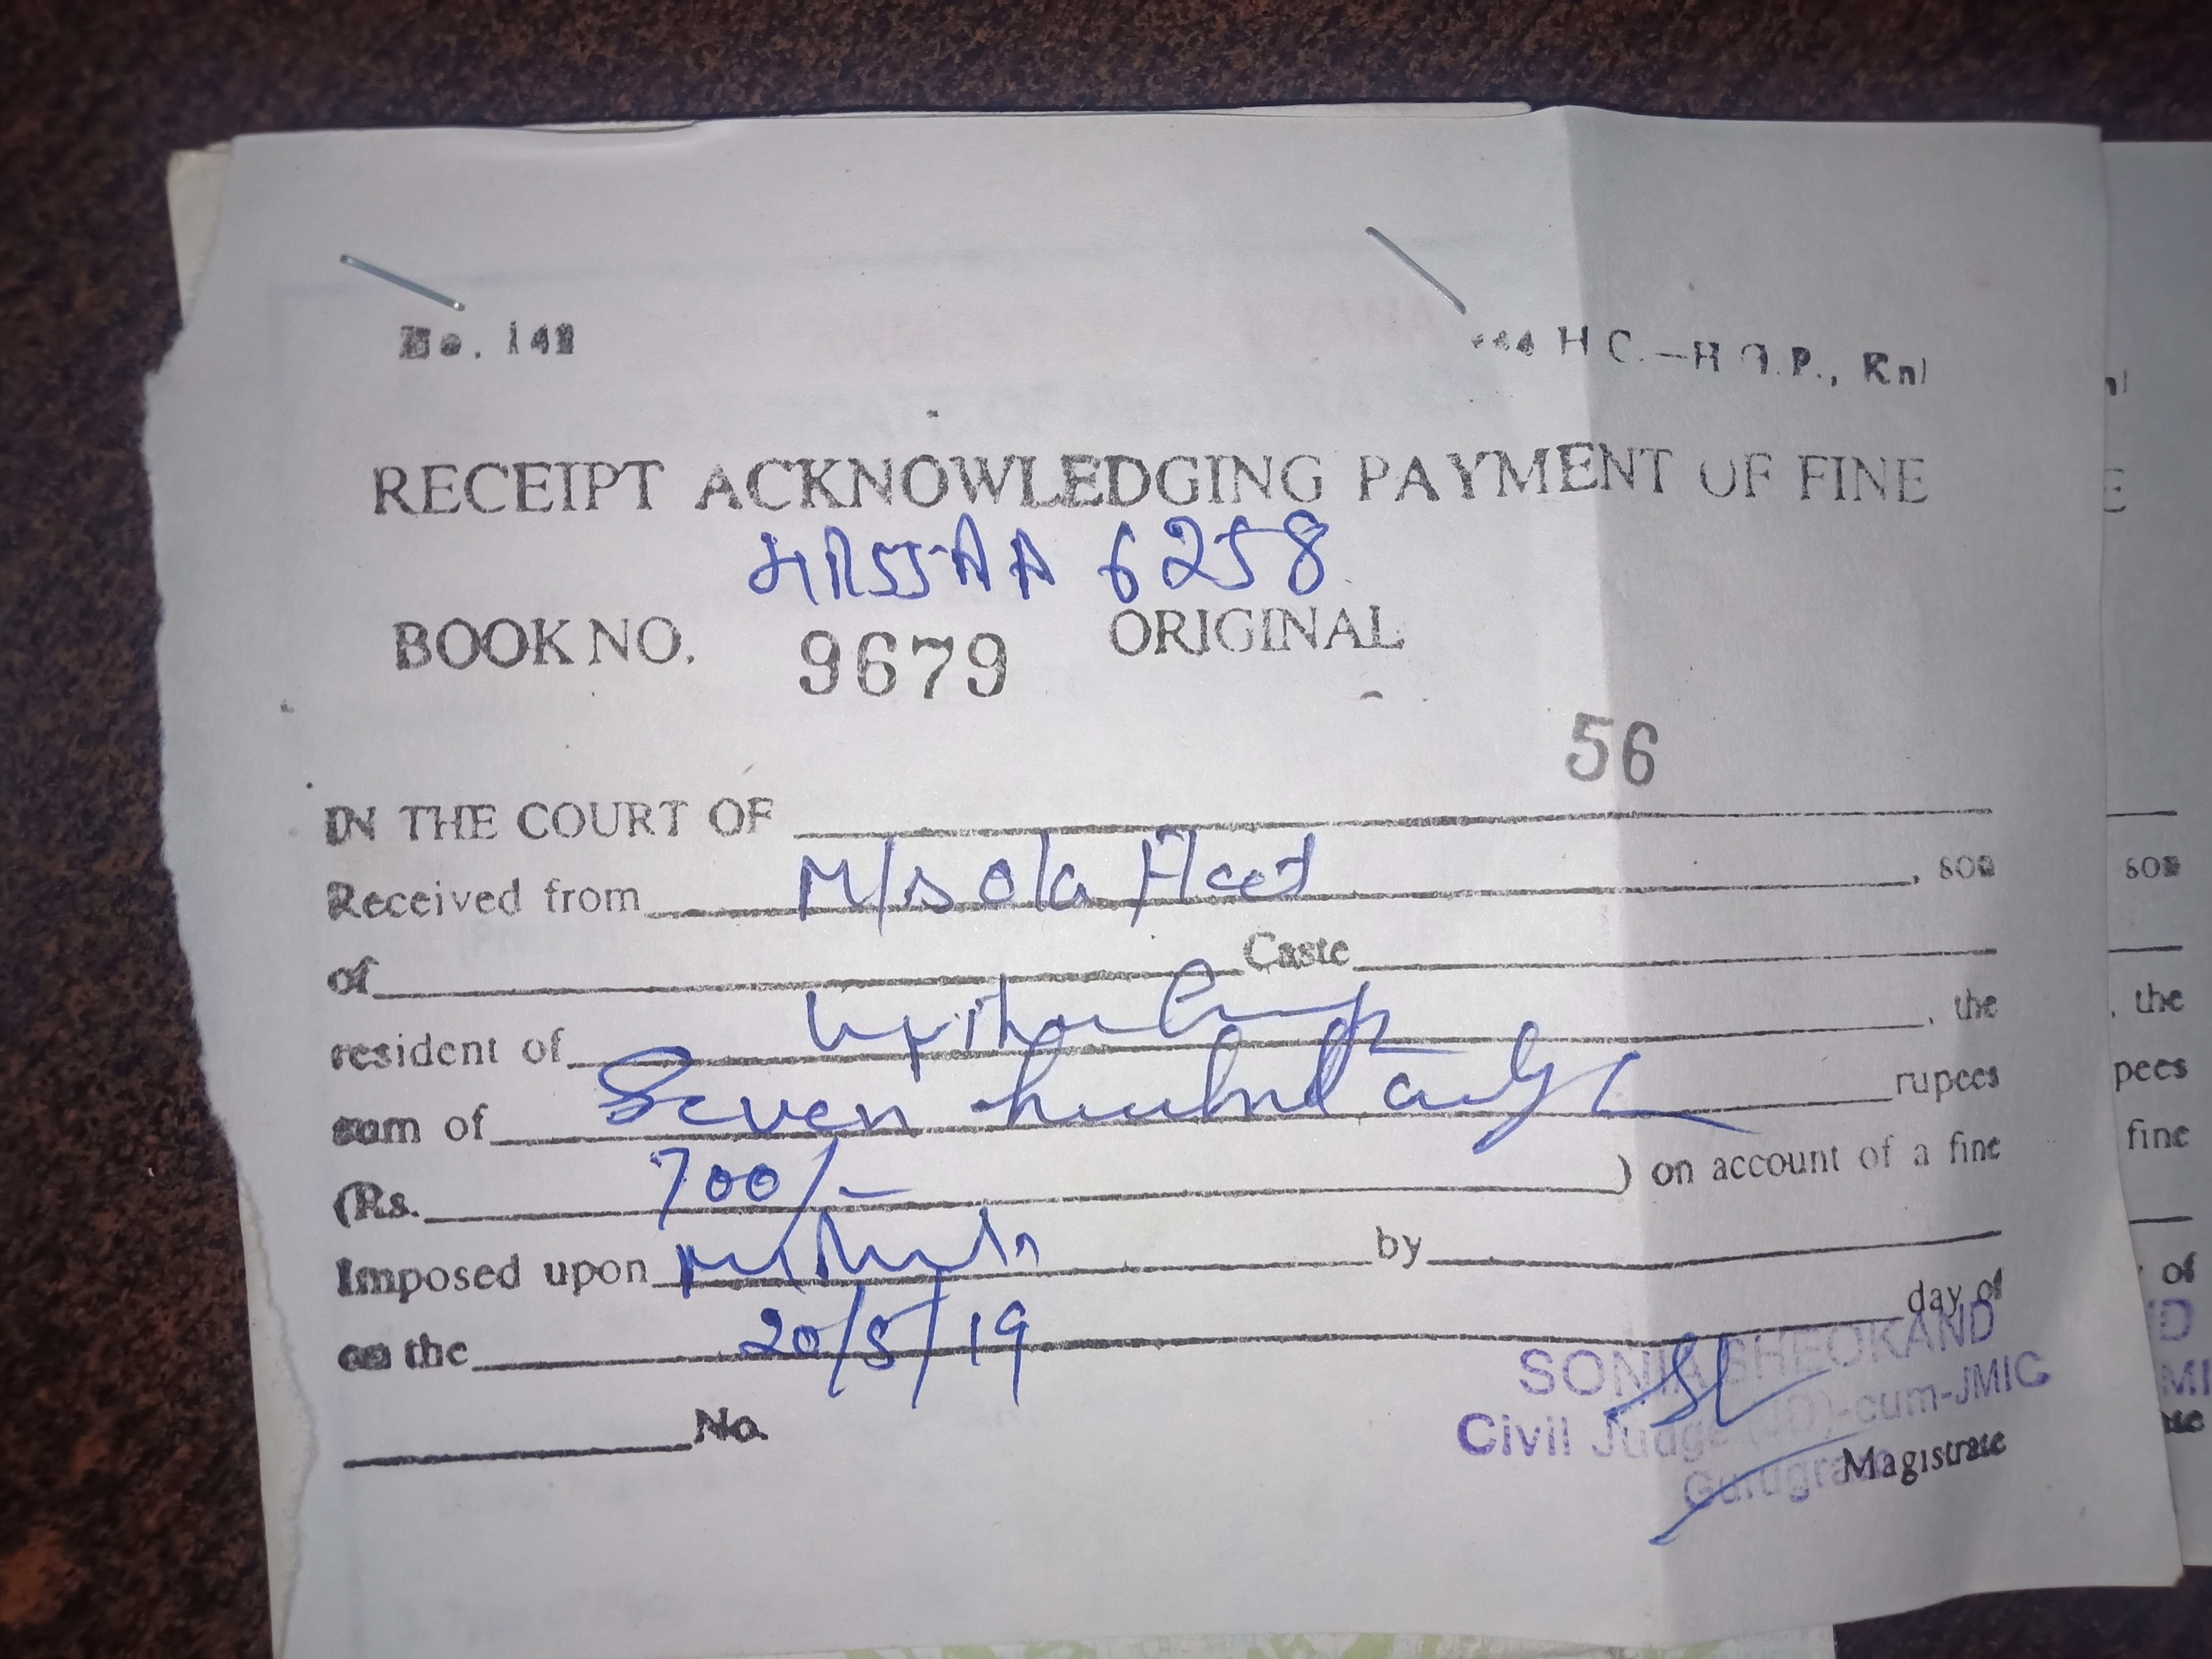 No. 142
H C.—H.G.P., Knl
RECEIPT ACKNOWLEDGING PAYMENT OF FINE
HR55AA 6258
BOOK NO. 9679 ORIGINAL
56
IN THE COURT OF
Received from M/s Ola Fleet, son
of Caste
resident of the
sum of Seven hundred only rupees
(Rs. 700/- ) on account of a fine
Imposed upon by
on the 20/5/19 day of
SONIA SHEOKAND
Civil Judge (JD)-cum-JMIC
Gurugram
No.
Magistrate
E
son
the
pees
fine
of